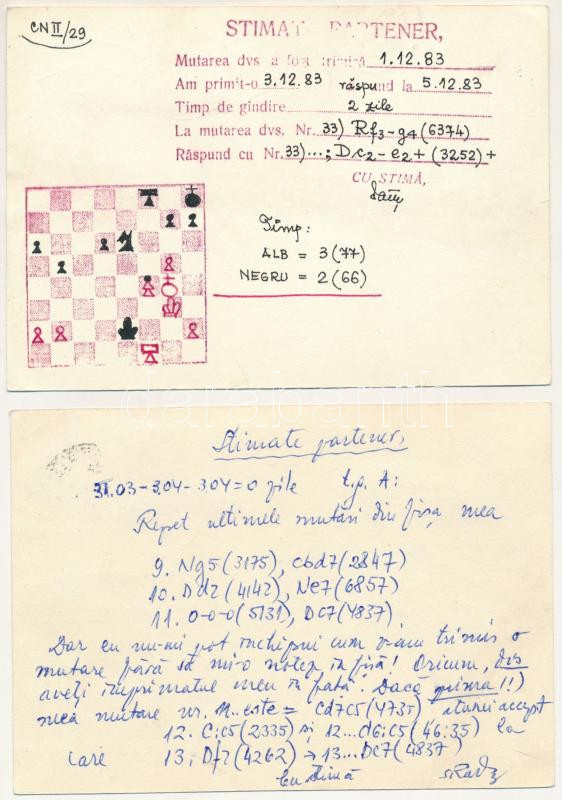 CN II/29
STIMATE PARTENER,
Mutarea dvs a fost trimisă 1.12.83
Am primit-o 3.12.83 răspund la 5.12.83
Timp de gîndire 2 zile
La mutarea dvs. Nr. 33) Rf3-g4 (6374)
Răspund cu Nr. 33)...; Dc2-e2+ (3252)+
CU STIMĂ,
Timp:
ALB = 3 (77)
NEGRU = 2 (66)
darabanth
Stimate partener,
31.03-3.04-3.04=0 zile t.p. A:
Repet ultimele mutări din fișa mea
9. Ng5 (3175), Cbd7 (2847)
10. Dd2 (4142), Ne7 (6857)
11. 0-0-0 (5131), Dc7 (4837)
Dar eu nu-mi pot închipui cum v-am trimis o
mutare fără să mi-o notez în fișă! Oricum, dvs
aveți imprimatul meu în față. Dacă prima!!)
mea mutare nr. 11...este = Cd7c5 (4735) atunci accept
12. C:c5 (2335) și 12...d6:c5 (46:35) la
care 13. Df2 (4262) → 13...Dc7 (4837)
Cu stimă